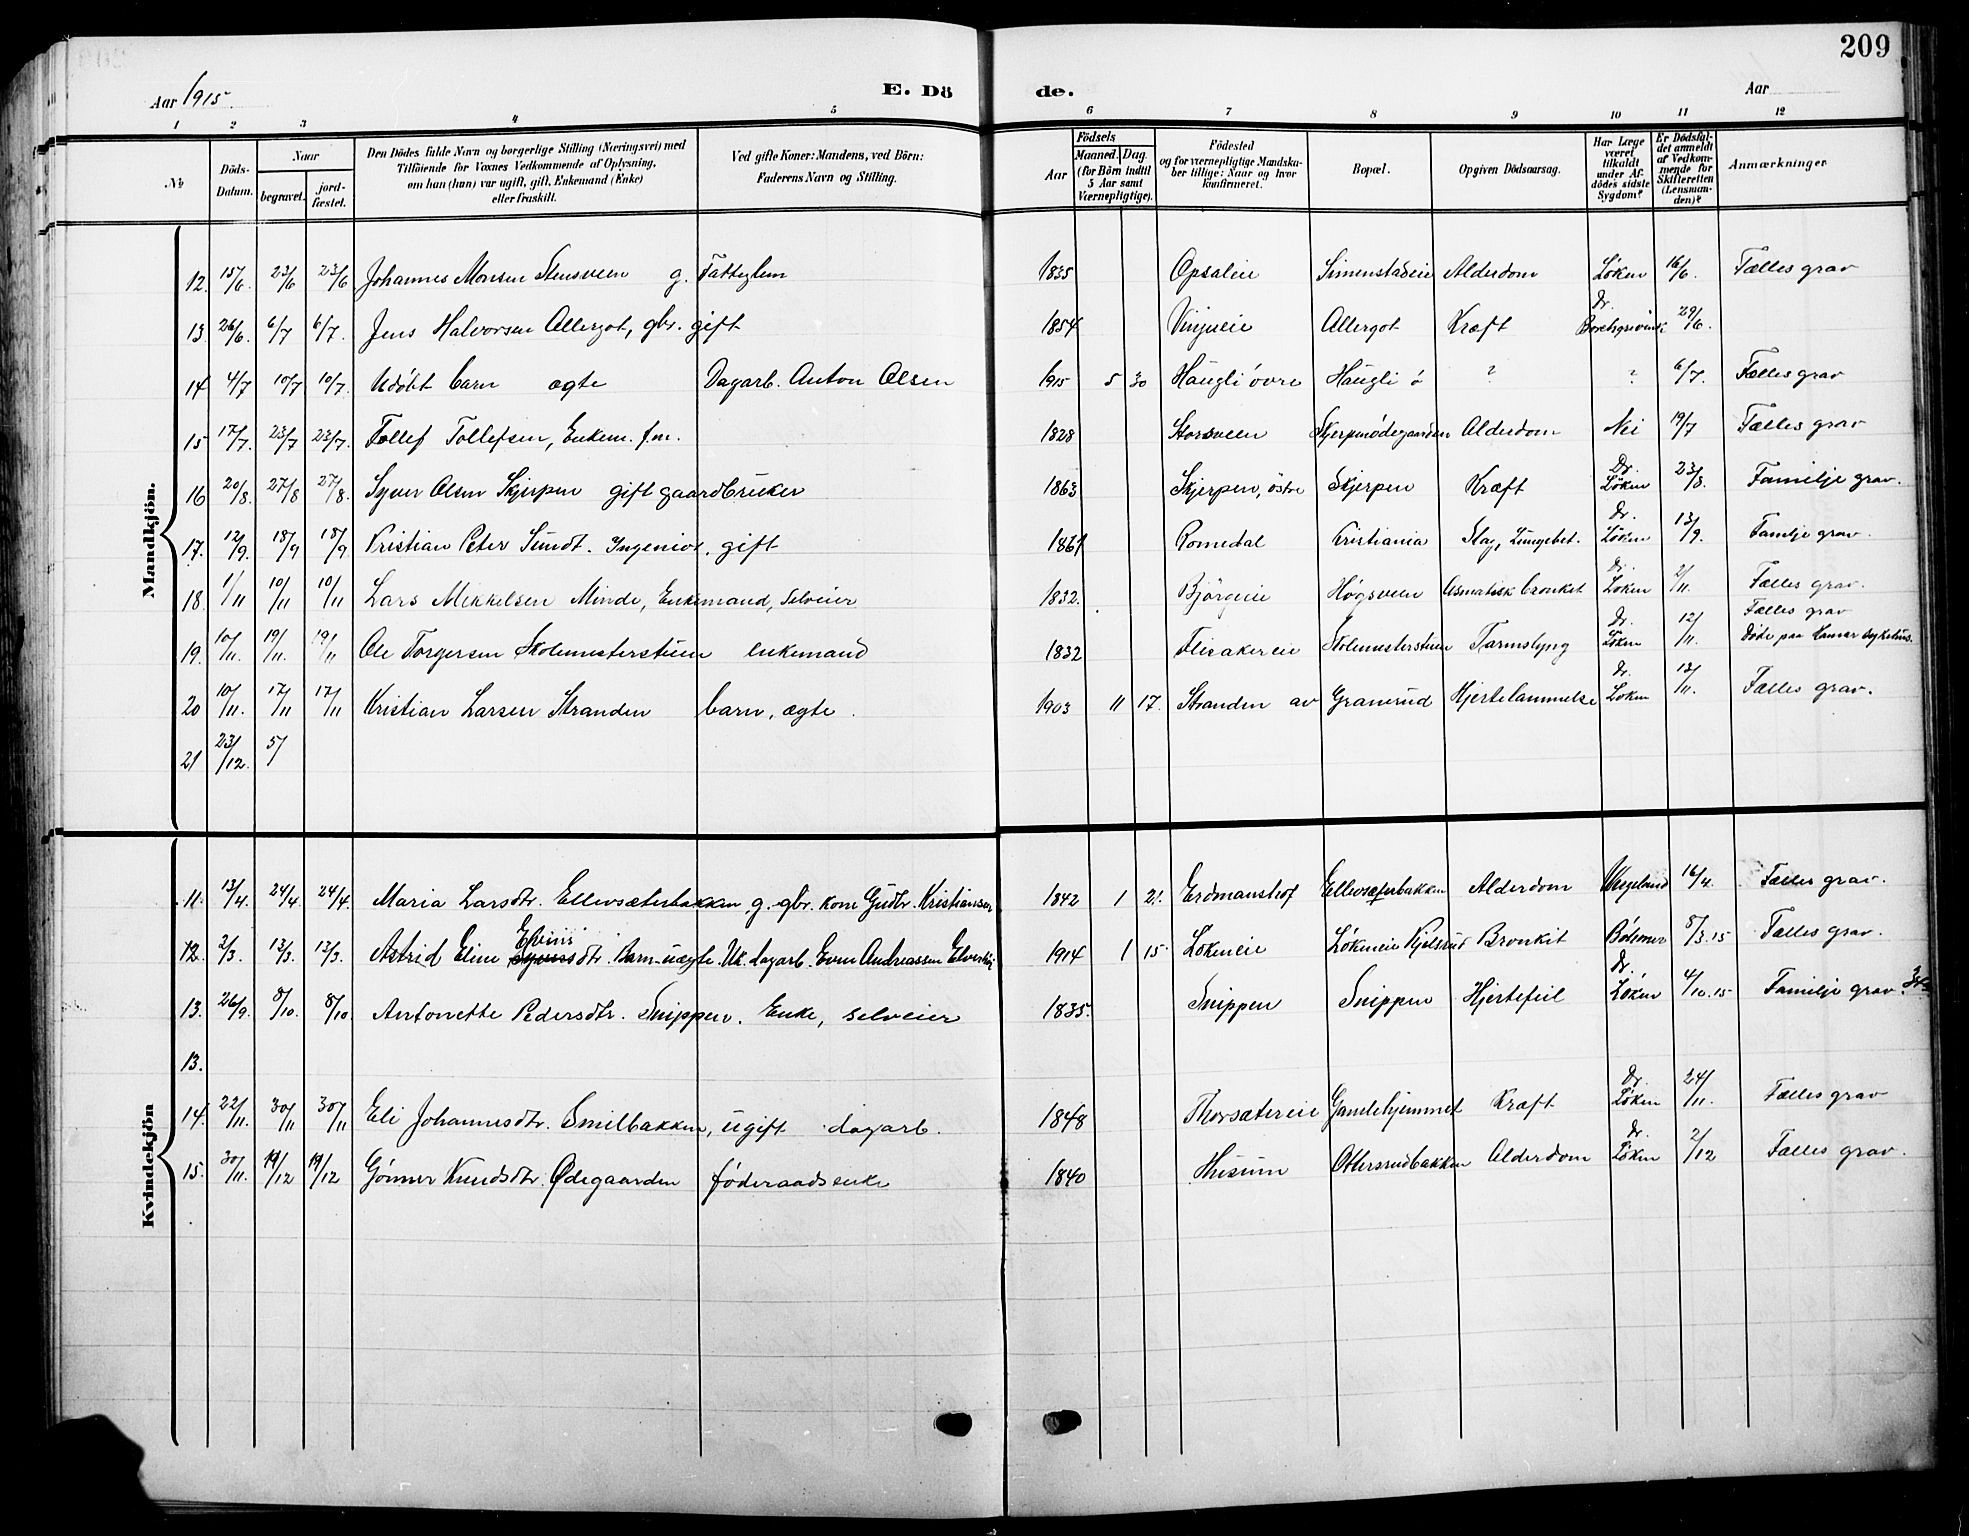 209
Aar 1915. E. Dö de. Aar
1 2 3 4 5 6 7 8 9 10 11 12
No Döds-Datum. Naar begravet. jord-fæstet. Den Dödes fulde Navn og borgerlige Stilling (Næringsvei) med Tilföiende for Voxnes Vedkommende af Oplysning, om han (hun) var ugift, gift, Enkemand (Enke) eller fraskilt. Ved gifte Koner: Mandens, ved Börn: Faderens Navn og Stilling. Födsels Aar Maaned. Dag. (for Börn indtil 5 Aar samt Værnepligtige). Födested og for værnepligtige Mandska-ber tillige: Naar og hvor konfirmeret. Bopæl. Opgiven Dödsaarsag. Har Læge været tilkaldt under Af-dödes sidste Sygdom? Er Dödsfal-det anmeldt af Vedkom-mende for Skifteretten (Lensman-den)? Anmærkninger
Mandkjön.
12. 15/6 23/6 23/6 Johannes Monsen Stensveen g. Fattiglem 1835 Opsaleie Simenstadeie Alderdom Løken 16/6. Fælles grav
13. 26/6. 6/7 6/7. Jens Halvorsen Allergot, gbr. gift 1854 Vinjueie Allergot Kræft Dr. Borchgrevink 29/6.
14 4/7 10/7 10/7. Udöbt barn ægte Dagarb. Anton Olsen 1915 5 30 Haugli övre Haugli ö ? ? 6/7. Fælles grav
15 17/7. 23/7 23/7. Tollef Tollefsen, Enkem. f.m. 1828 Storsveen Skjerpenødegaarden Alderdom Nei 19/7 Fælles grav
16 20/8. 27/8 27/8. Syver Olsen Skjerpen gift gaardbruker 1863 Skjerpen, östre Skjerpen Kræft Dr. Løken 23/8. Familje grav.
17. 12/9. 18/9 18/9. Kristian Peter Sundt. Ingeniør, gift 1867 Romedal Kristiania Slag, Lungebet. Dr. Løken 13/9. Familje grav.
18. 1/11 10/11 10/11 Lars Mikkelsen Minde, Enkemand, Selveier 1832. Björgeie Høgsveen Asmatisk bronkit Dr. Løken 2/11. Fælles grav.
19. 10/11. 19/11. 19/11 Ole Torgersen Skolemesterstuen enkemand 1832 Flisakereie Skolemesterstuen Tarmslyng Dr. Løken 12/11. Fælles grav Døde paa Hamar sykehus.
20 10/11. 17/11 17/11 Kristian Larsen Stranden barn, ægte. 1903 11 17. Stranden av Granerud Hjertelammelse Dr. Løken 12/11. Fælles grav.
21 23/12. 5/
Kvindekjön
11. 13/4. 24/4. 24/4. Maria Larsdtr. Ellevsæterbakken g. gbr. kone Gudbr. Kristiansen 1842 1 21. Erdmanshof Ellevsæterbakken Alderdom Wegeland 16/4. Fælles grav.
12. 2/3. 13/3. 13/3. Astrid Eline Evens dtr. Barn uægte. Uk. dagarb. Even Andreassen 1914 1 15 Løkeneie Løkeneie Kjelsrud Bronkit Böhmer 8/3.15 Fælles grav.
13. 26/9. 8/10. 8/10 Antonette Pedersdtr. Snippen. Enke, selveier 1835. Snippen Snippen Hjertefeil Dr. Løken 4/10.15 Familje grav.
13.
14. 22/11. 30/11 30/11 Eli Johannesdtr. Smilbakken, ugift dagarb. 1848 Thorsætereie Gamlehjemmet Kræft Dr. Løken 24/11. Fælles grav
15. 30/11. 19/12 19/12 Gönner Knudsdtr. Ødegaarden føderaadsenke 1840 Husum Ottersrudbakken Alderdom Dr. Løken 2/12 Fælles grav.